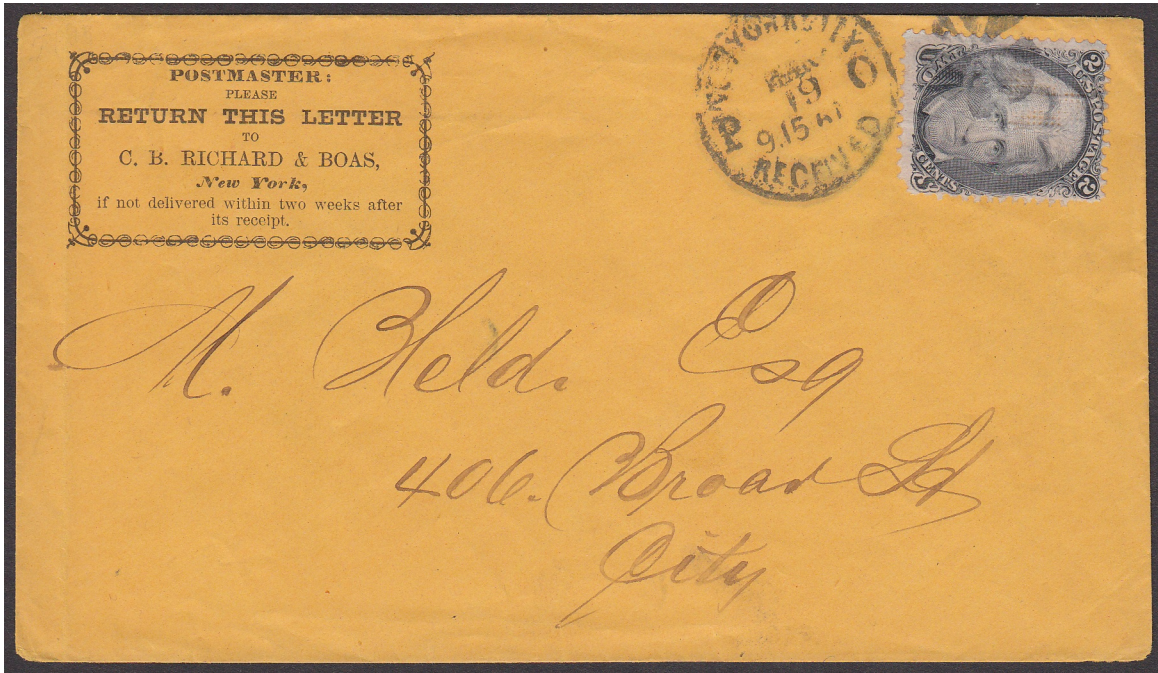 POSTMASTER:
PLEASE
RETURN THIS LETTER
TO
C. B. RICHARD & BOAS,
New York,
if not delivered within two weeks after
its receipt.
NEW YORK CITY
P. O.
MAR
19
9.15
RECEIVED
U.S. POSTAGE
2 2
CENTS
M. Held. Esq
406. Broad St
City